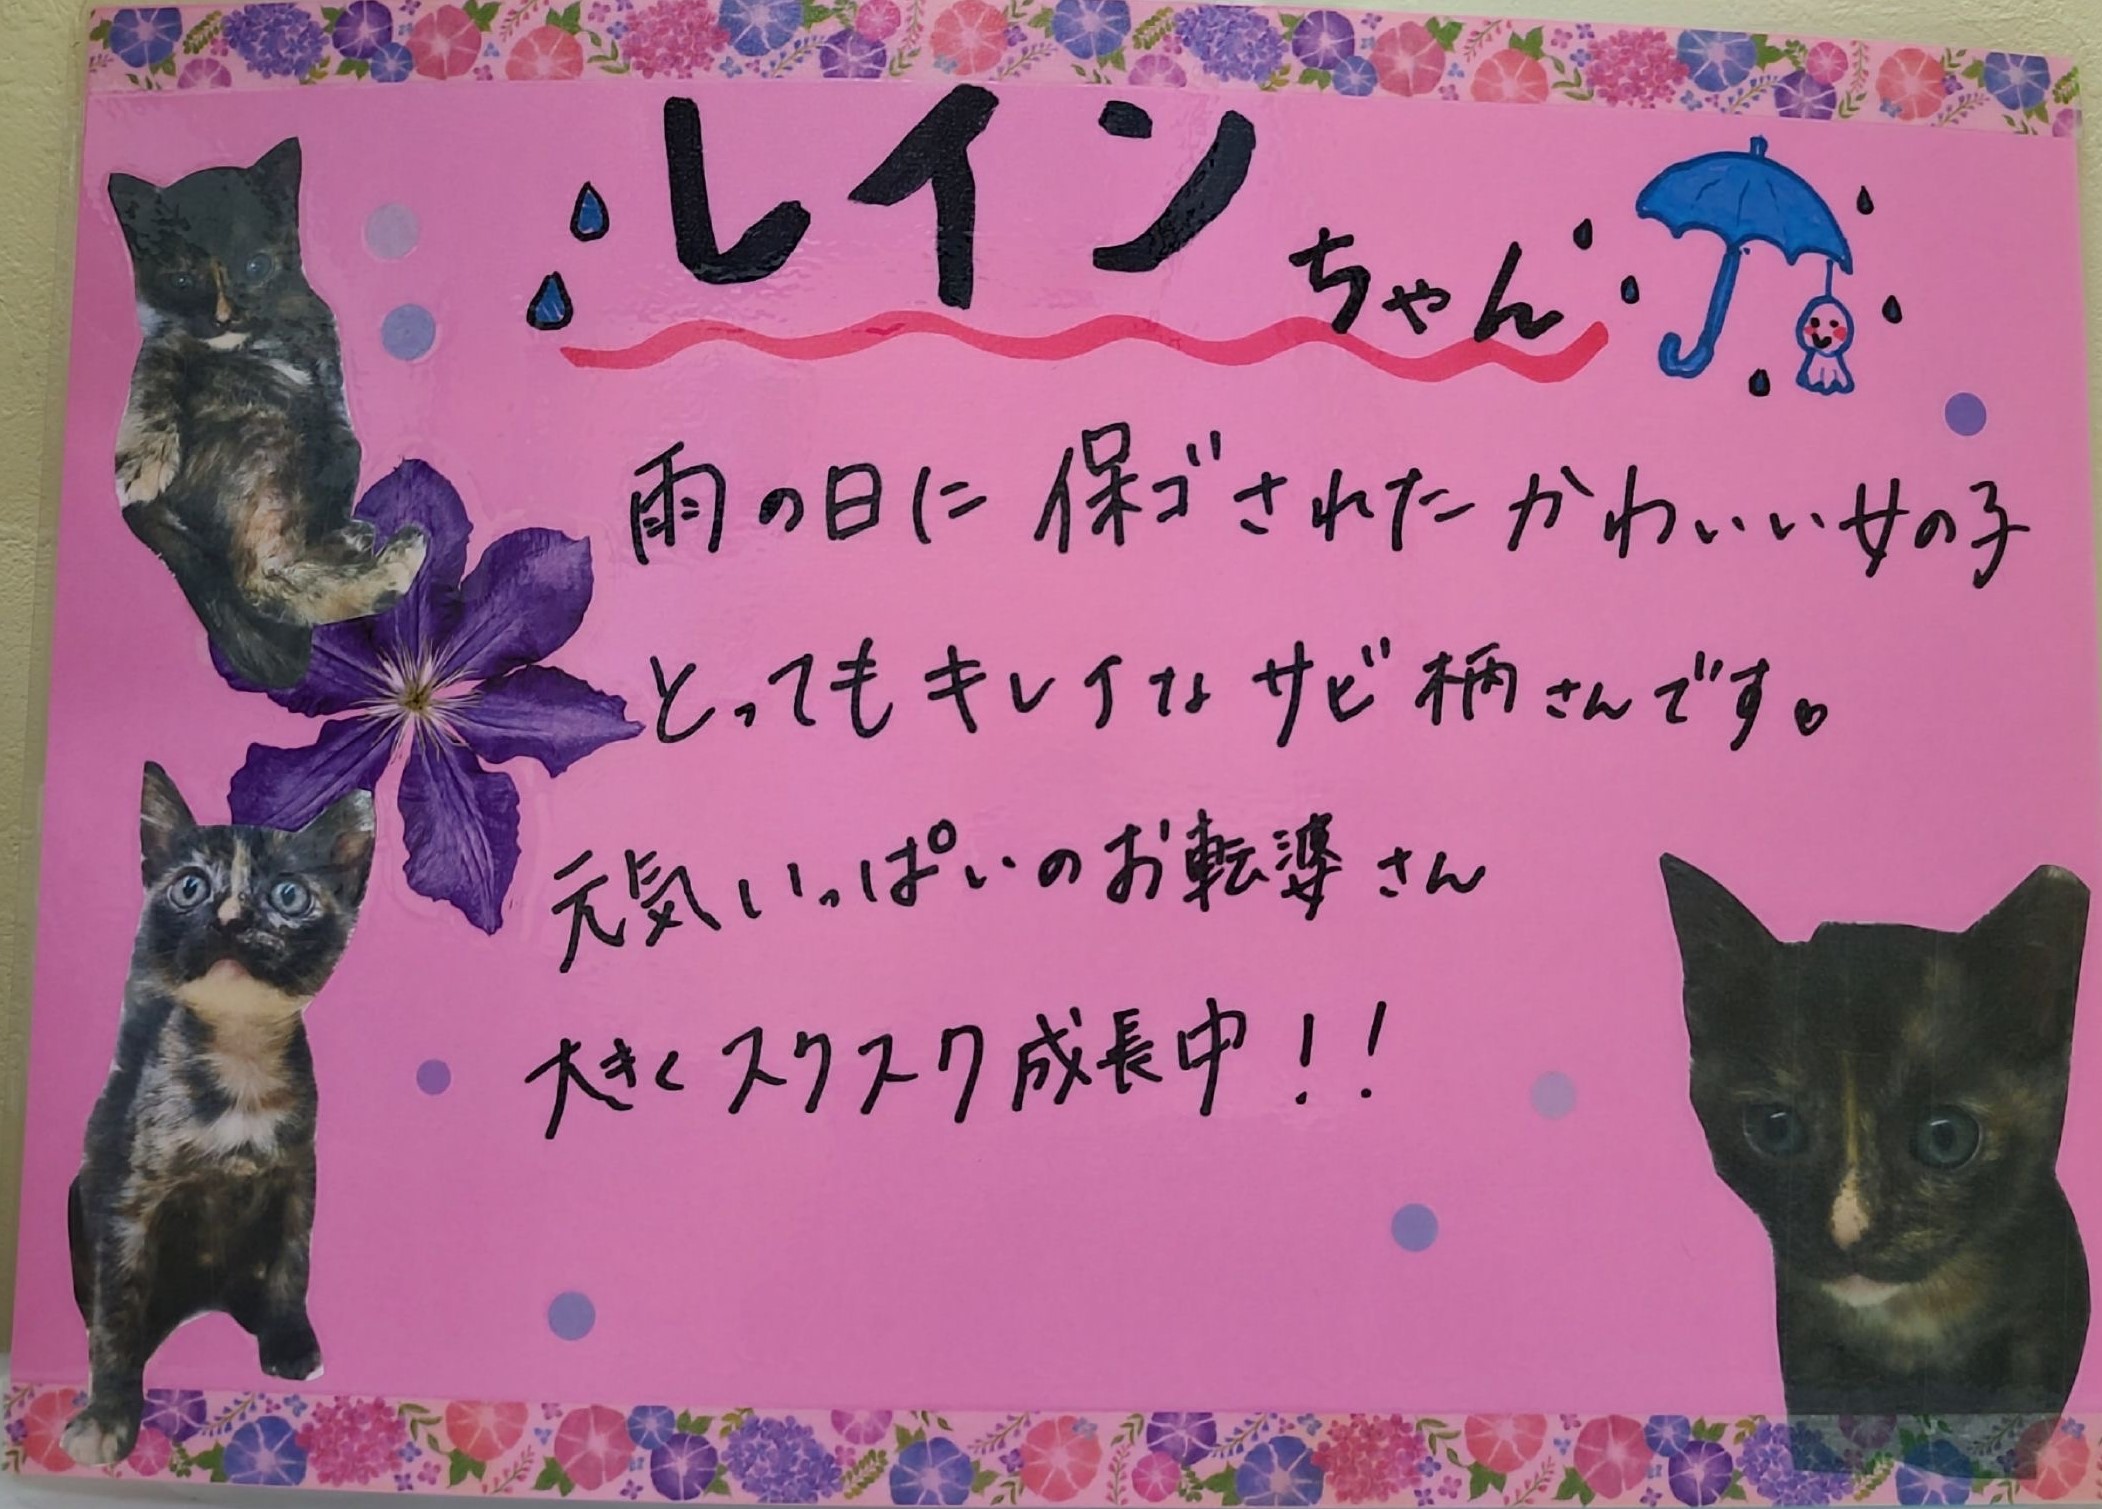 レインちゃん
雨の日に保ゴされたかわいい女の子
とってもキレイなサビ柄さんです。
元気いっぱいのお転婆さん
大きくスクスク成長中！！